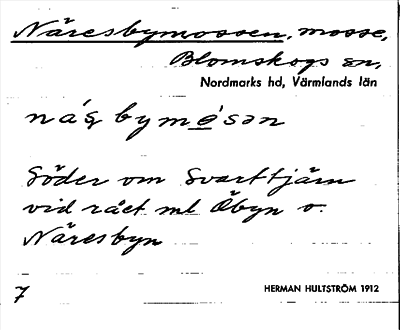 Näresbymossen, mosse,
Blomskogs sn,
Nordmarks hd, Värmlands län
Söder om Svarttjärn
vid rået ml Åbyn o.
Näresbyn
7
HERMAN HULTSTRÖM 1912